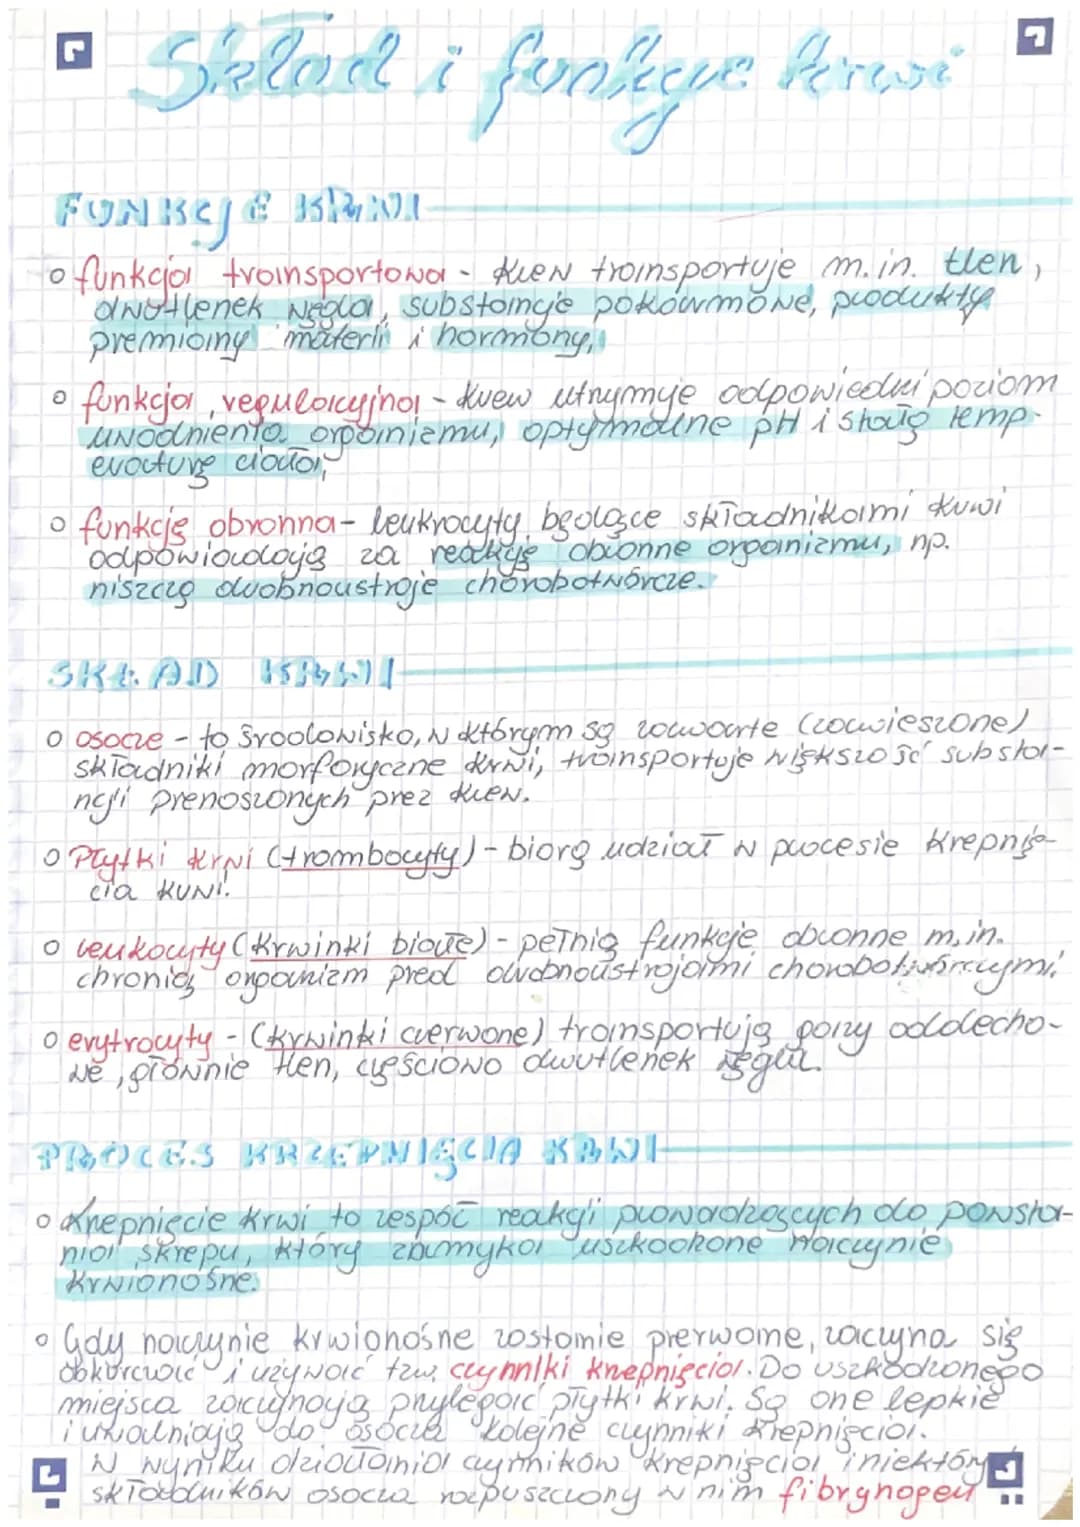 Skład i funkcje krwi
FUNKCJE KRWI
o funkcja transportowa - krew transportuje m.in. tlen,
dwutlenek węgla, substancje pokarmowe, produkty
przemiany materii i hormony,
o funkcja regulacyjna - krew utrzymuje odpowiedni poziom
uwodnienia organizmu, optymalne pH i stałą temp-
eraturę ciała,
o funkcję obronna - leukrocyty będące składnikami krwi
odpowiadają za reakcję obronne organizmu, np.
niszczą drobnoustroje chorobotwórcze.
SKŁAD KRWI
o osocze - to środowisko, w którym są zawarte (zawieszone)
składniki morfotyczne krwi, transportuje większość substa-
ncji przenoszonych przez krew.
o Płytki krwi (trombocyty) - biorą udział w procesie krzepnię-
cia krwi.
o leukocyty (krwinki białe) - pełnią funkcje obronne m.in.
chronią organizm przed drobnoustrojami chorobotwórczymi.
o erytrocyty - (krwinki czerwone) transportują gazy oddecho-
we, głównie tlen, częściowo dwutlenek węgla.
PROCES KRZEPNIĘCIA KRWI
o Krzepnięcie krwi to zespół reakcji prowadzących do powsta-
nia skrzepu, który zamyka uszkodzone naczynie
krwionośne.
o Gdy naczynie krwionośne zostanie przerwane, zaczyna się
obkurczać i używać tzw. czynniki krzepnięcia. Do uszkodzonego
miejsca zaczynają przylegać płytki krwi. Są one lepkie
i uwalniają do osocza kolejne czynniki krzepnięcia.
W wyniku działania czynników krzepnięcia i niektóry
składników osocza rozpuszczony w nim fibrynogen